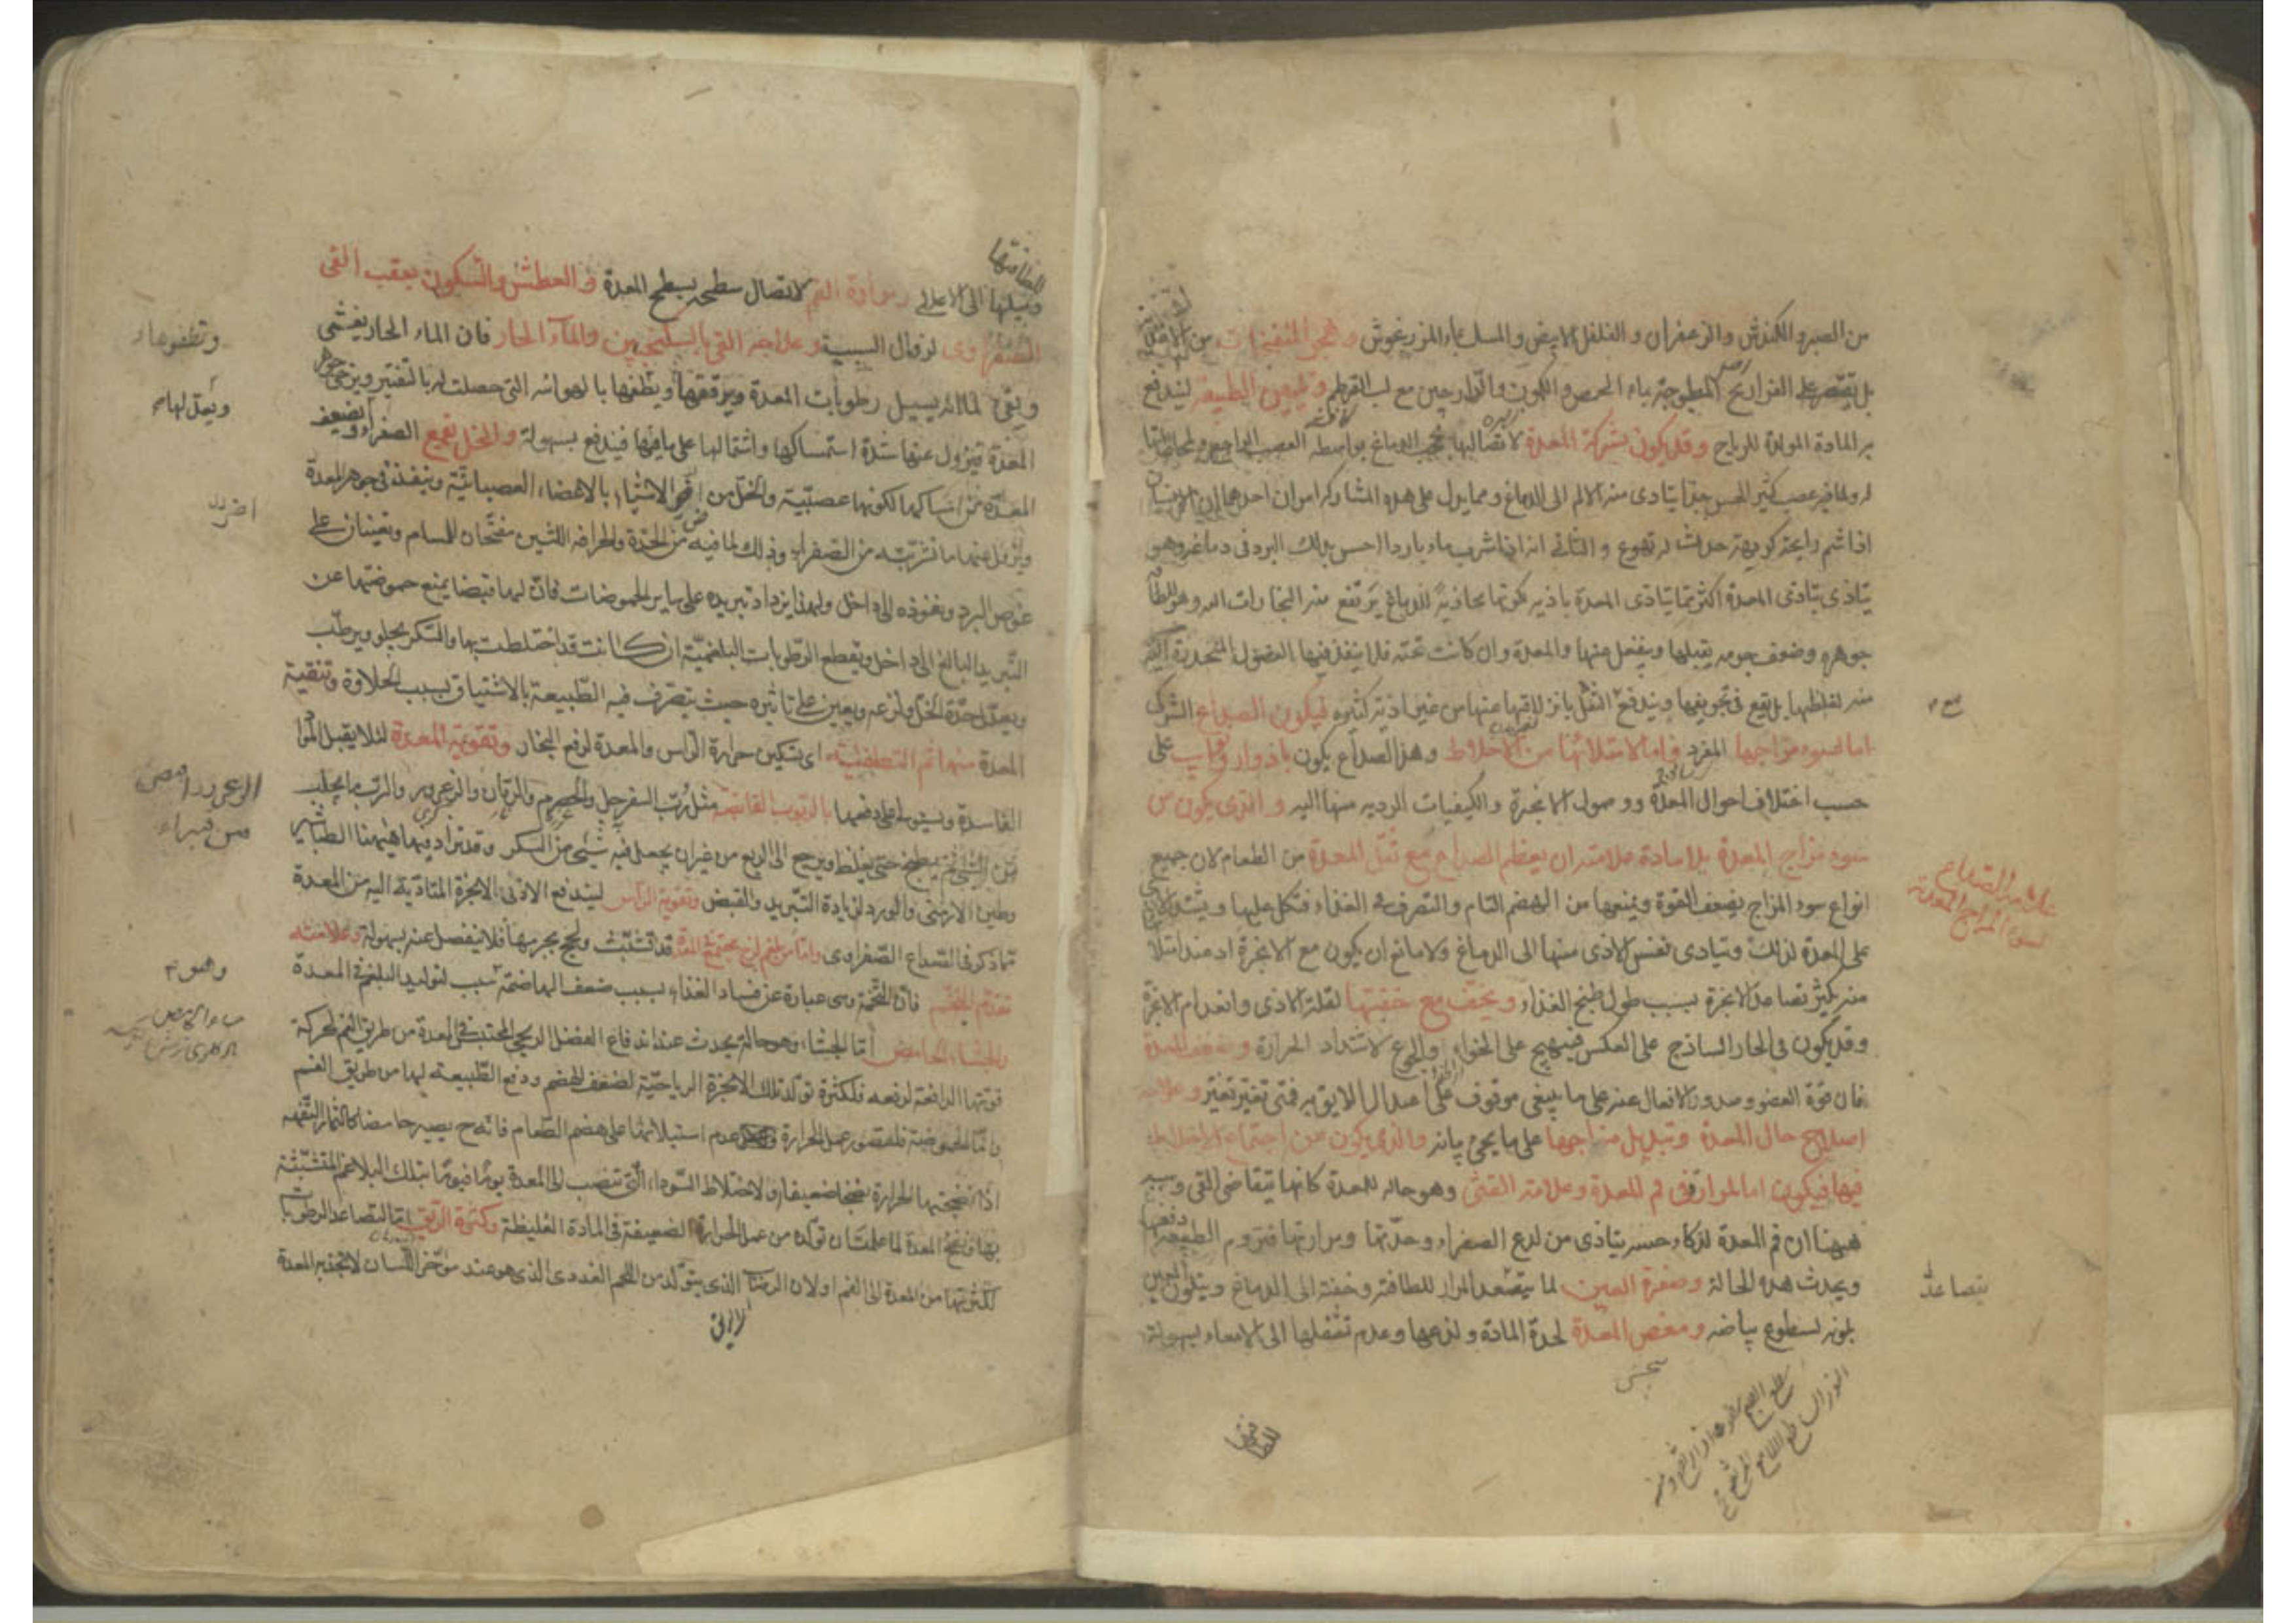 من الصبر والكندش والزعفران والفلفل الابيض والمسك بماء المرزنجوش وهجر المنفخات من
بل يقتصر على الفراريج المطبوخة بماء الحمص والكمون والدارجين مع لب القرطم وتليين الطبيعة ليندفع
المادة المولدة للرياح وقد يكون بشركة المعدة لاتصالها بحجب الدماغ بواسطة العصب
له ولما فيه عصب كثير الحس جدا يتادى منه الالم الى الدماغ ومما يدل على هذه المشاركة امران احدهما ان الانسان
اذا شم رايحة كريهة حدث له تهوع والثانى انه اذا شرب ماء باردا احس بذلك البرد فى دماغه وهو
يتاذى بتاذى المعدة اكثر مما يتاذى المعدة باذيه لكونها محاذية للدماغ يرتفع منه البخارات اليه وهو
جوهره وضعف جرمه يقبلها وينفعل عنها والمعدة وان كانت تحته فلا ينفذ فيها الفضول المنحدرة
منه لغلظها بل يقع فى تجويفها ويندفع الثقل بانزلاقها عنها من غير اذية كثيره فيكون الصداع الشركى
اما لسوء مزاجها المفرد واما لامتلائها من الاخلاط وهذا الصداع يكون بادوار ونوايب على
حسب اختلاف احوال المعدة ووصول الابخرة والكيفيات الردية منها اليه والذى يكون من
سوء مزاج المعدة بلا مادة علامته ان يعظم الصداع مع ثقل المعدة من الطعام لان جميع
انواع سوء المزاج يضعف القوة ويمنعها من الهضم التام والتصرف فى الغذاء فتكل عليها ويشتد
على المعدة لذلك ويتادى نفس الاذى منها الى الدماغ ولا مانع ان يكون مع الابخرة اذ عند امتلا
منه يكثر تصاعد الابخرة بسبب طول طبخ الغذاء ويخف مع خفتها لقلة الاذى وانعدام الابخرة
وقد يكون فى الحار الساذج على العكس فيهيج على الخواء والجوع لاشتداد الحرارة وضعف المعدة
فان قوة العضو وصدور الافعال عنه على ما ينبغى موقوف على اعتدال اللايق به فمتى تغير تغير وعلاجه
اصلاح حال المعدة وتبديل مزاجها على ما يجئ بيانه والذى يكون من اجتماع الاخلاط
فيها فيكون اما لمرار فى فم المعدة وعلامته الغثى وهو حالة للمعدة كانها تتقاضى القى وسببه
ههنا ان فم المعدة لذكاء حسه يتاذى من لذع الصفراء وحدتها ومرارتها فتروم الطبيعة دفعها
ويحدث هذه الحالة وصفرة العين لما يتصعد المرار للطافته وخفته الى الدماغ ويتلون العين
بلونه لسطوع بياضه ومغص المعدة لحدة المادة ولذعها وعدم تسفلها الى الامعاء بسهولة
علامة الصداع
لسوء المزاج المعدة
يتصاعد
للطافتها
للطافتها
وميلها الى الاعلى ومرارة الفم لاتصال سطحه بسطح المعدة والعطش والسكون بعقب القى
الصفراوى لزوال السبب وعلاجه القى بالسكنجبين والماء الحار فان الماء الحار يغثى
ويقئ لما انه يسيل رطوبات المعدة ويرققها ويطفيها بالهوائيه التى حصلت له بالتفتير ويرخى جوهر
المعدة فيزول عنها شدة استمساكها واشتمالها على ما فيها فيندفع بسهولة والخل يقمع الصفراء ويضعف
المعدة عن امساكها لكونها عصبية والخل من اضر الاشياء بالاعضاء العصبانية وينفذ فى جوهر المعدة
ويزيل عنها ما تشربته من الصفراء وذلك لما فيه من الحدة والحرافة اللتين مفتحان للمسام وتعينان على
غوص البرد ونفوذه الى داخل ولهذا يزداد تبريده على ساير الحموضات فان لها قبضا يمنع حموضتها عن
التبريد البالغ الى داخل ويقطع الرطوبات البلغمية ان كانت قد اختلطت بها والسكر يجلو ويرطب
ويعدل حدة الخل ولذعه ويعين على تاثيره حيث يتصرف فيه الطبيعة بالاشتياق بسبب الحلاوة وتنقية
المعدة منها ثم التطفئة اى تسكين حرارة الراس والمعدة لرفع البخار وتقوية المعدة لئلا يقبل المواد
الفاسدة ويستولى على دفعها بالربوب القابضة مثل رب السفرجل والحصرم والرمان والزعرور والرب ما يحلب
من الشئ ثم يطبخ حتى يغلظ ويرجع الى الربع من غير ان يجعل فيه شئ من السكر وقد يزاد فيها ههنا الطباشير
وطين الارمنى والورد لزيادة التبريد والقبض وتقوية الراس ليندفع الاذى الابخرة المتادية اليه من المعدة
مما ذكر فى الصداع الصفراوى واما من بلغم لزج يجتمع فى المعدة قد تشبثت ولحج بجرمها فلا ينفصل عنه بسهولة وعلامته
تقدم التخم فان التخمة وهى عبارة عن فساد الغذاء بسبب ضعف الهاضمة سبب لتوليد البلغم فى المعدة
والجشاء الحامض اما الجشاء وهو حالة يحدث عند اندفاع الفضل الريحى المحتبس فى المعدة من طريق الفم لحركة
قوتها الدافعة لدفعه فلكثرة تولد تلك الابخرة الرياحية لضعف الهضم ودفع الطبيعة لها من طريق الفم
واما الحموضة فلقصور عمل الحرارة وعدم استيلائها على هضم الطعام فانه ح يصير حامضا كالثمار التفهه
اذا نضجتها الحرارة نضجا ضعيفا ولاختلاط السوداء التى تنصب الى المعدة يوما فيوما بتلك البلاغم المتشبثة
بها ونفخ المعدة لما علمت ان تولده من عمل الحرارة الضعيفة فى المادة الغليظة وكثرة الريق اما لتصاعد الرطوبات
لكثرتها من المعدة الى الفم او لان الرضاب الذى يتولد من اللحم الغددى الذى هو عند مؤخر اللسان لا تجذبه المعدة